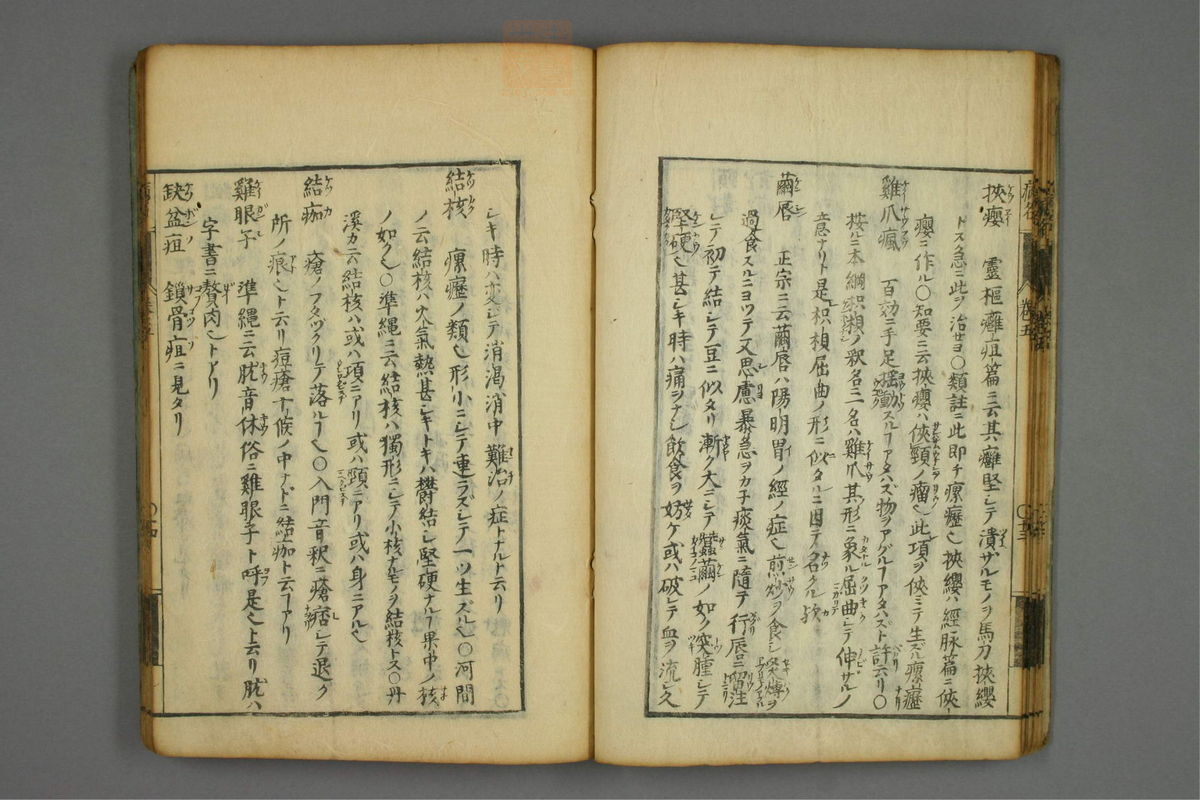 挾癭 靈樞癰疽篇ニ云其癰堅シテ潰ザルモノヲ馬刀挾纓
トス急ニ此ヲ治セヨ○類註ニ此即チ瘰癧也挾纓ハ經脉篇ニ俠
癭ニ作ル○知要ニ云挾癭ハ俠頸ノ瘤也此項ヲ俠ミテ生ズル瘰癧ナリ
雞爪瘋 百効ニ手足搖動スルヿアタハズ物ヲアグルヿアタハズト許云リ○
按ルニ本綱枳椇ノ釈名ニ一名ハ雞爪其形ニ象ル屈曲シテ伸ザルノ
意ナリト是レ枳ノ椇屈曲ノ形ニ似タルニ因テ名クル歟
繭唇 正宗ニ云繭唇ハ陽明胃ノ經ノ症也煎炒ヲ食シ炙煿ヲ
過食スルニヨツテ又思慮暴急ヲカ子痰氣ニ隨テ行唇ニ畱注
シテ初テ結シテ豆ニ似タリ漸ク大ニシテ蠶繭ノ如ク突腫シテ
堅硬也甚シキ時ハ痛ヲナシ飲食ヲ妨ケ或ハ破レテ血ヲ流シ久
シキ時ハ変シテ消渇消中難治ノ症トナルト云リ
結核 瘰癧ノ類也形小ニシテ連ラズシテ一ツ生ズル也○河間
ノ云結核ハ火氣熱甚シキトキハ鬱結シ堅硬ナルヿ果中ノ核
ノ如ク也○準縄ニ云結核ハ獨形ニシテ小核ナルモノヲ結核トス○丹
溪カ云結核ハ或ハ項ニアリ或ハ頸ニアリ或ハ身ニアル也
結痂 瘡ノフタヅクリテ落ルヿ也○入門音釈ニ瘡痞シテ退ク
所ノ痕也ト云リ痘瘡十候ノ中ナドニ結痂ト云フアリ
雞眼子 準縄ニ云肬音休俗ニ雞眼子ト呼是也ト云リ肬ハ
字書ニ贅肉也トアリ
缺盆疽 鎖骨疽ニ見タリ